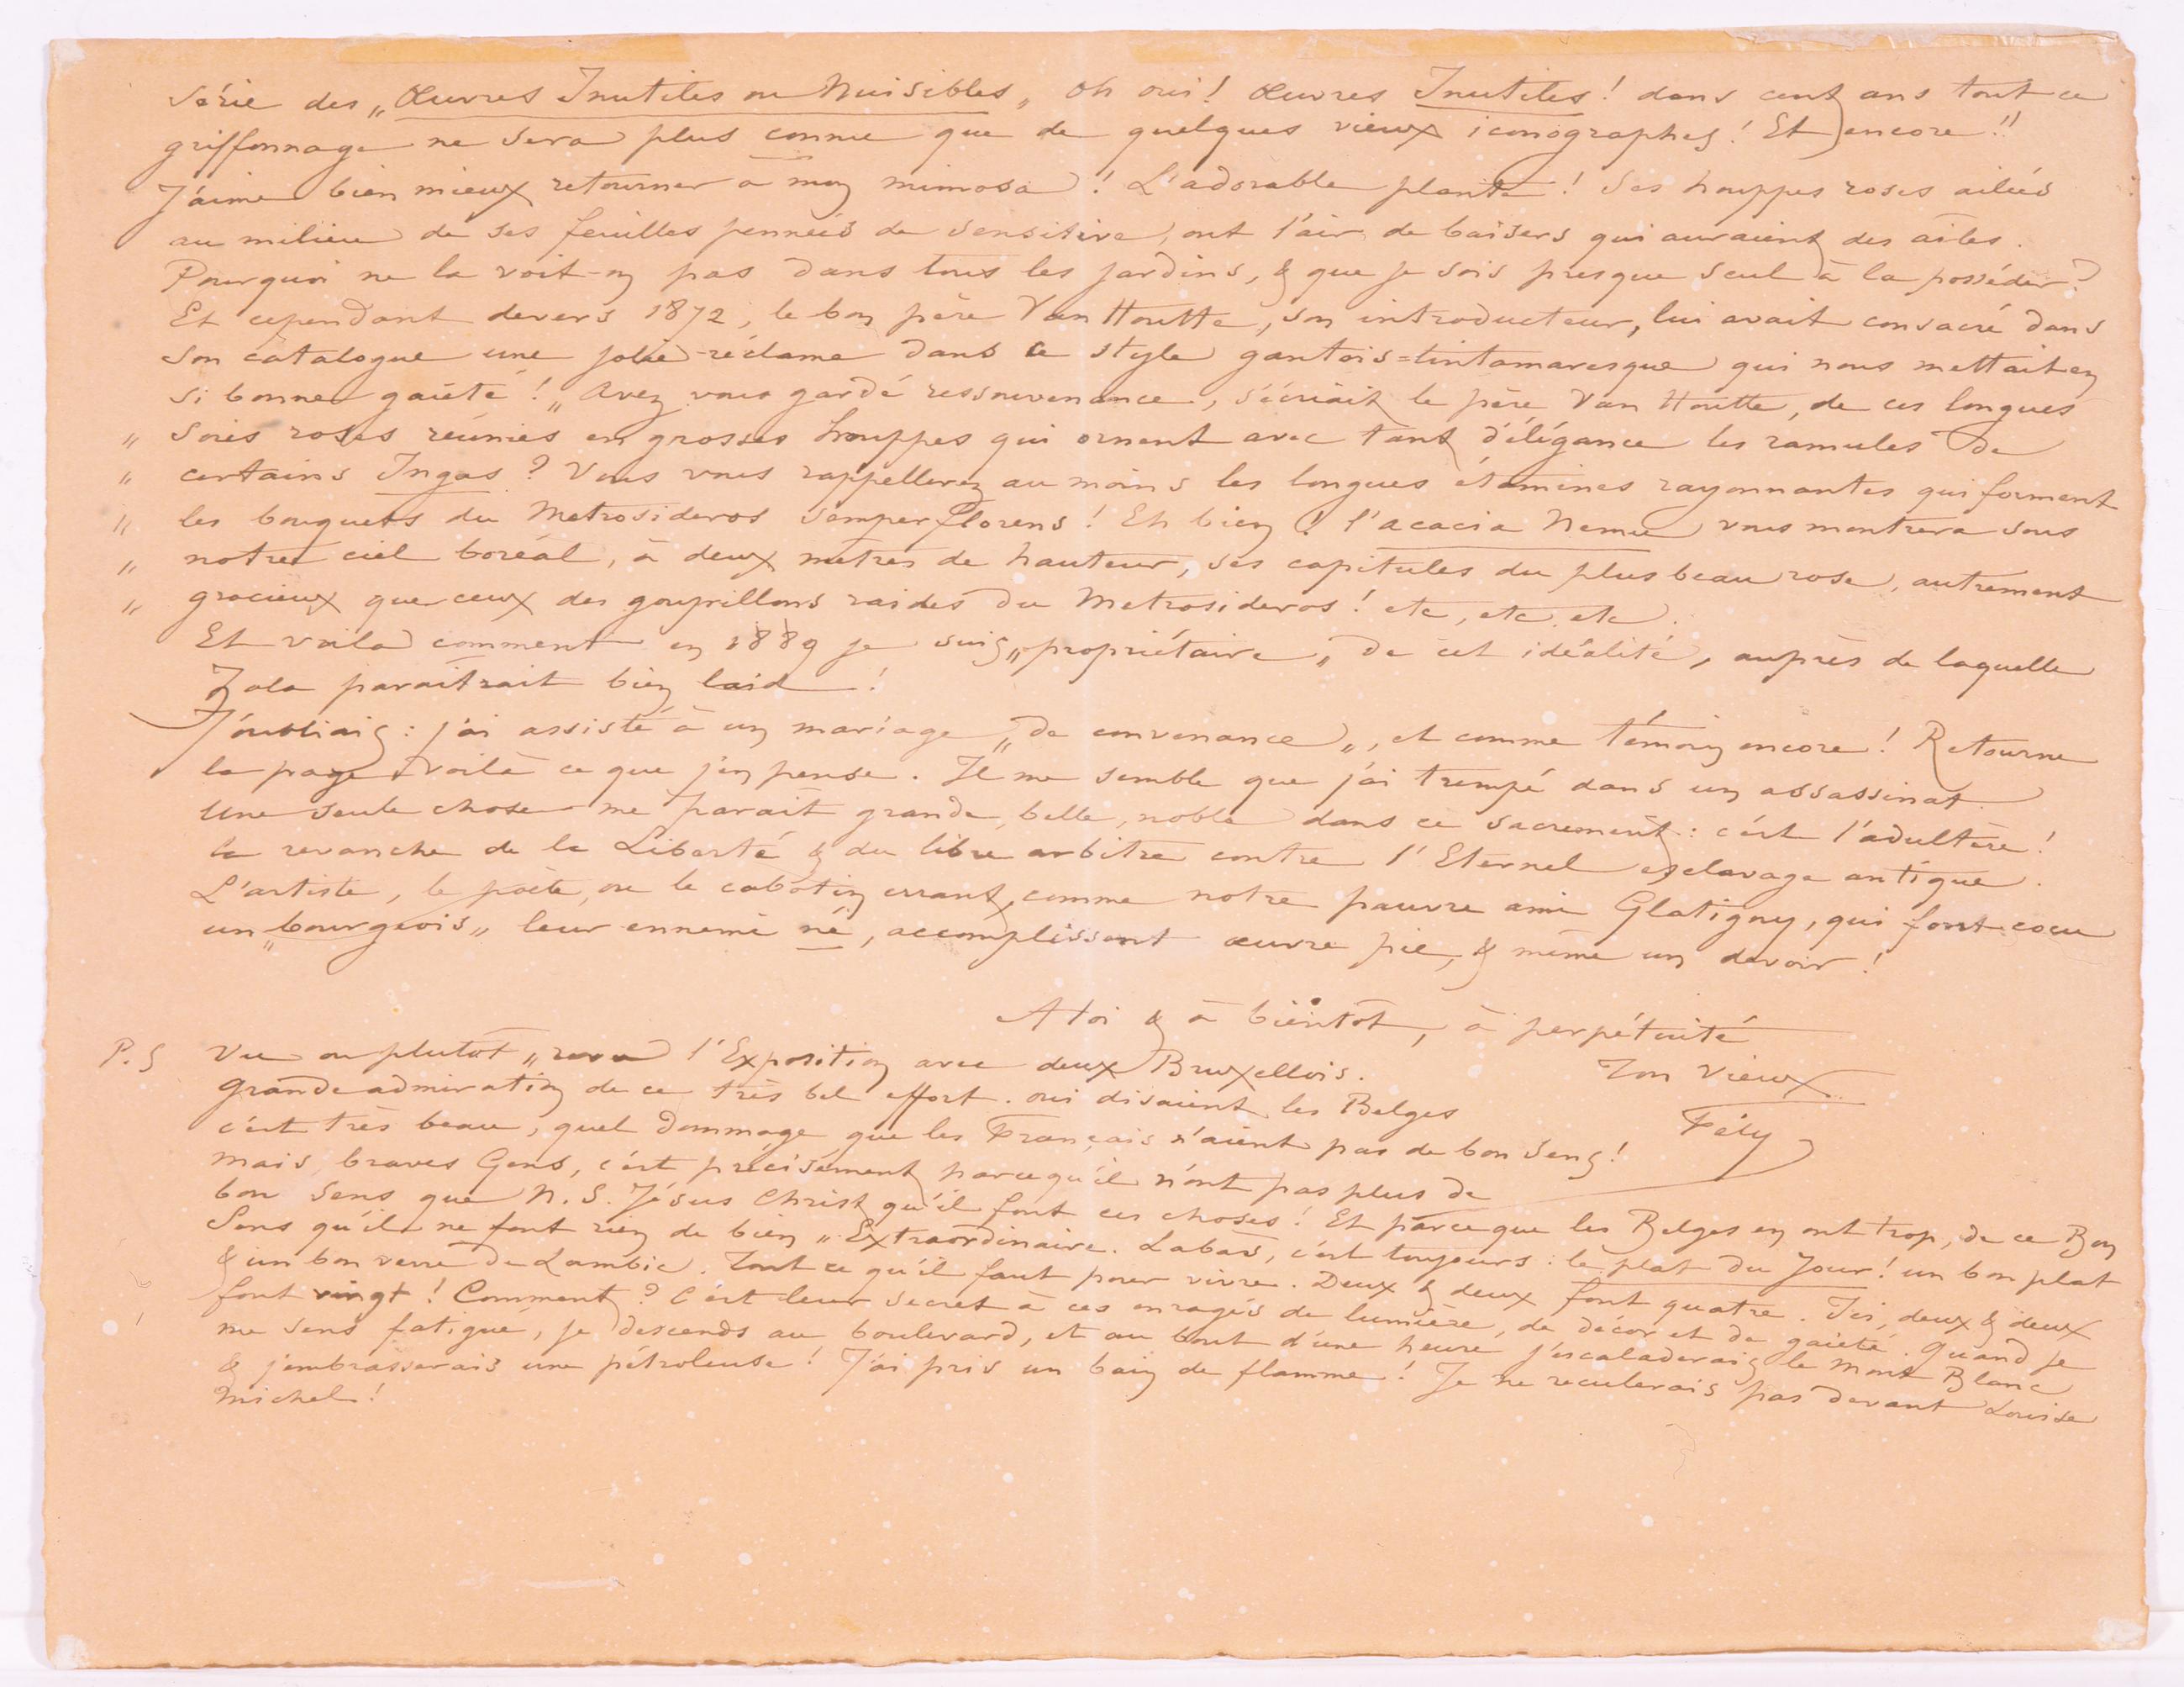 série des „Œuvres Inutiles ou Nuisibles„ oh oui! Œuvres Inutiles! dans cent ans tout ce
griffonnage ne sera plus connu que de quelques vieux iconographes! Et encore!!
J'aime bien mieux retourner à mon mimosa! L'adorable plante! Ses houppes roses ailées
au milieu de ses feuilles pennées de sensitive, ont l'air de baisers qui auraient des ailes.
Pourquoi ne la voit-on pas dans tous les jardins, & que je sois presque seul à la posséder?
Et cependant devers 1872, le bon père Van Houtte, son introducteur, lui avait consacré dans
son catalogue une jolie réclame dans ce style gantois=tintamaresque qui nous mettait en
si bonne gaieté! „Avez vous gardé ressouvenance, s'écriait le père Van Houtte, de ces longues
„ soies roses réunies en grosses houppes qui ornent avec tant d'élégance les ramules de
„ certains Ingas? Vous vous rappellerez au moins les longues étamines rayonnantes qui forment
„ les bouquets du Metrosideros semperflorens! Eh bien! l'acacia Nemu vous montrera sous
„ notre ciel boréal, à deux mètres de hauteur, ses capitules du plus beau rose, autrement
„ gracieux que ceux des goupillons raides du Metrosideros! etc, etc. etc.
Et voila comment en 1889 je suis „propriétaire„ de cet idéalité, auprès de laquelle
Zola paraitrait bien laid!
J'oubliais: j'ai assisté à un mariage „de convenance„, et comme témoin encore! Retourne
la page voilà ce que j'en pense. Il me semble que j'ai trempé dans un assassinat.
Une seule chose me parait grande, belle, noble dans ce sacrement: c'est l'adultère!
la revanche de la Liberté & du libre arbitre contre l'Eternel esclavage antique.
L'artiste, le poète, ou le cabotin errant, comme notre pauvre ami Glatigny, qui font cocu
un „bourgeois„ leur ennemi né, accomplissent œuvre pie, & même un devoir!
A toi & à bientôt, à perpétuité
Ton vieux
Fély
P.S Vu ou plutôt „revu l'Exposition avec deux Bruxellois.
Grande admiration de ce très bel effort. oui disaient les Belges
c'est très beau, quel dommage que les Français n'aient pas de bon sens!
Mais, braves Gens, c'est précisément parcequ'il n'ont pas plus de
bon sens que N.S. Jésus Christ qu'il font ces choses! Et parceque les Belges en ont trop, de ce Bon
Sens qu'il ne font rien de bien „Extraordinaire. Labas, c'est toujours: le plat du Jour! un bon plat
& un bon verre de Lambic. Tout ce qu'il faut pour vivre. Deux & deux font quatre. Ici, deux & deux
font vingt! Comment? C'est leur secret à ces enragés de lumière, de décor et de gaieté. Quand je
me sens fatigué, je descends au boulevard, et au bout d'une heure j'escaladerais le Mont Blanc
& j'embrasserais une pétroleuse! J'ai pris un bain de flamme! Je ne reculerais pas devant Louise
Michel!